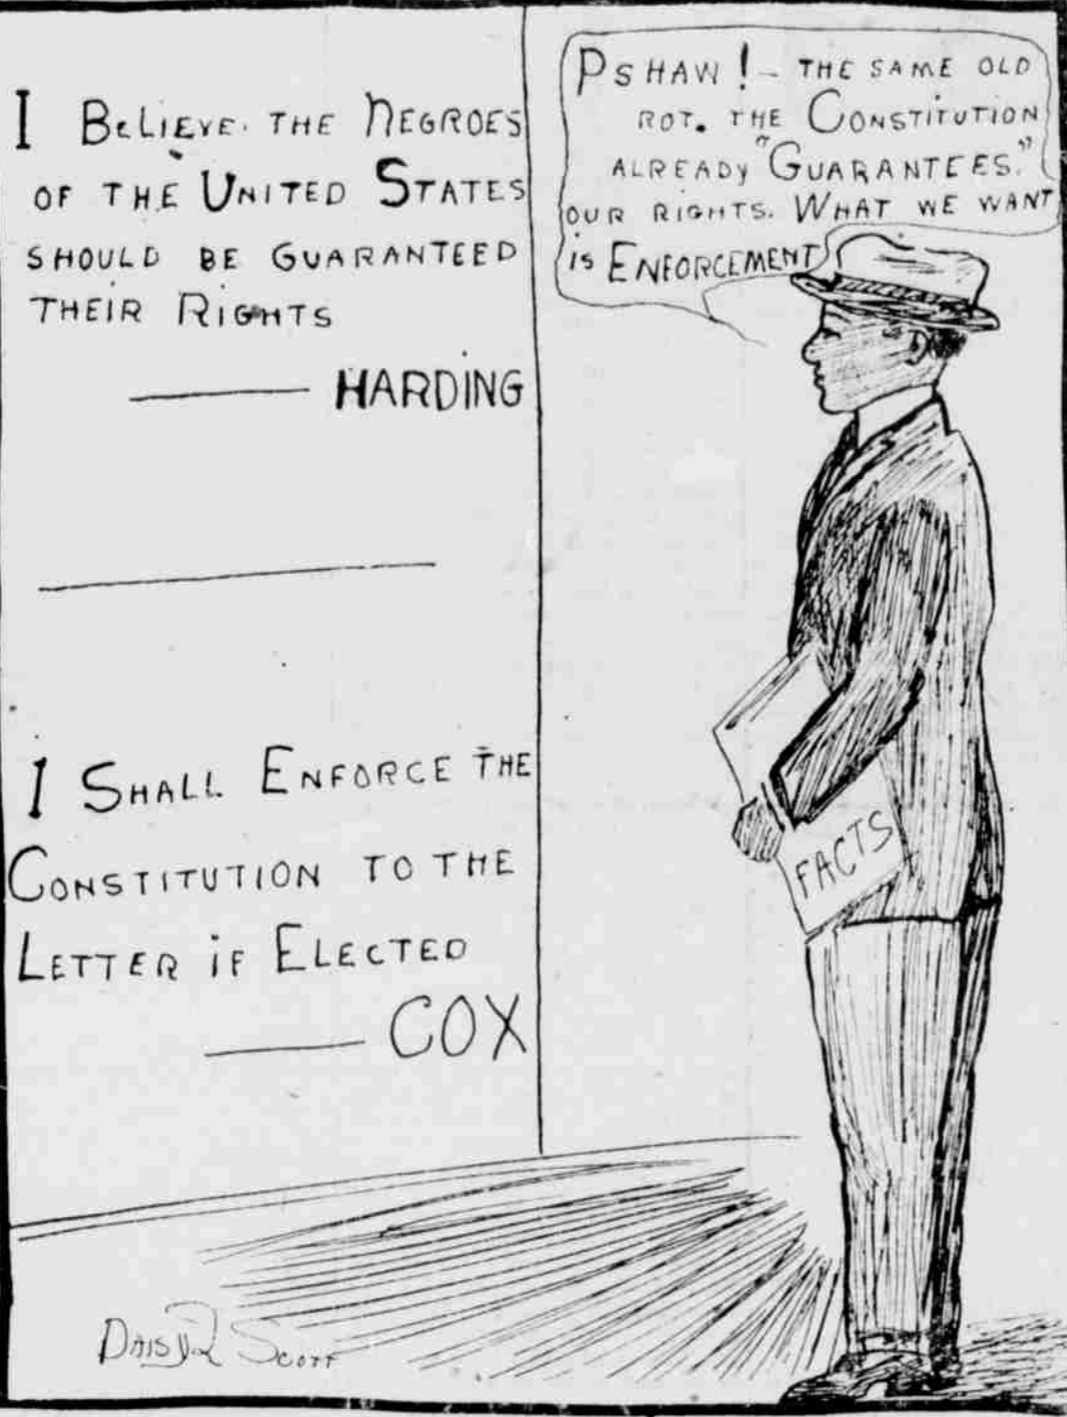 I BELIEVE THE NEGROES
OF THE UNITED STATES
SHOULD BE GUARANTEED
THEIR RIGHTS
— HARDING
I SHALL ENFORCE THE
CONSTITUTION TO THE
LETTER iF ELECTED
— COX
PSHAW! - THE SAME OLD
ROT. THE CONSTITUTION
ALREADY "GUARANTEES"
OUR RIGHTS. WHAT WE WANT
iS ENFORCEMENT
FACTS
DAISY SCOTT